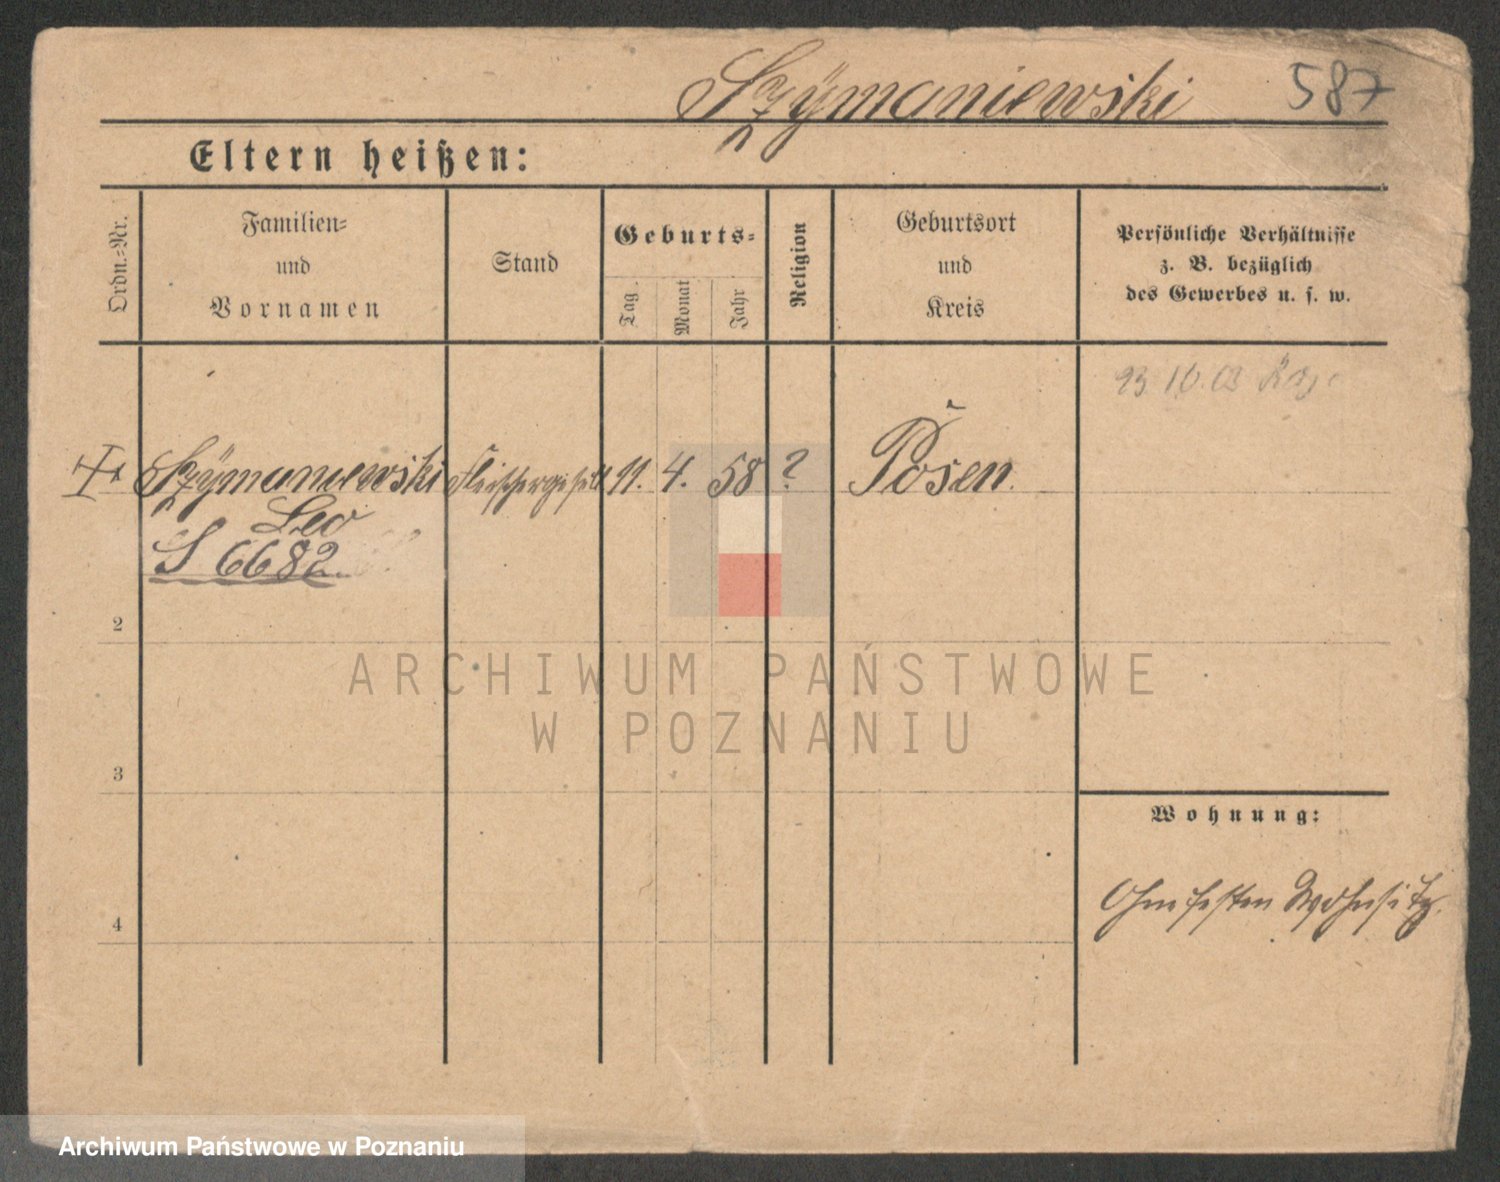 Szymaniewski 587
Eltern heißen:
Ordn.-Nr.
Familien-
und
Vornamen
Stand
Geburts-
Tag.
Monat
Jahr
Religion
Geburtsort
und
Kreis
Persönliche Verhältnisse
z. B. bezüglich
des Gewerbes u. s. w.
Szymaniewski Fleischergesell 11. 4. 58 ? Posen.
Leo
S 6682
2
3
4
Wohnung:
Ohne festen Wohnsitz.
ARCHIWUM PAŃSTWOWE
W POZNANIU
Archiwum Państwowe w Poznaniu